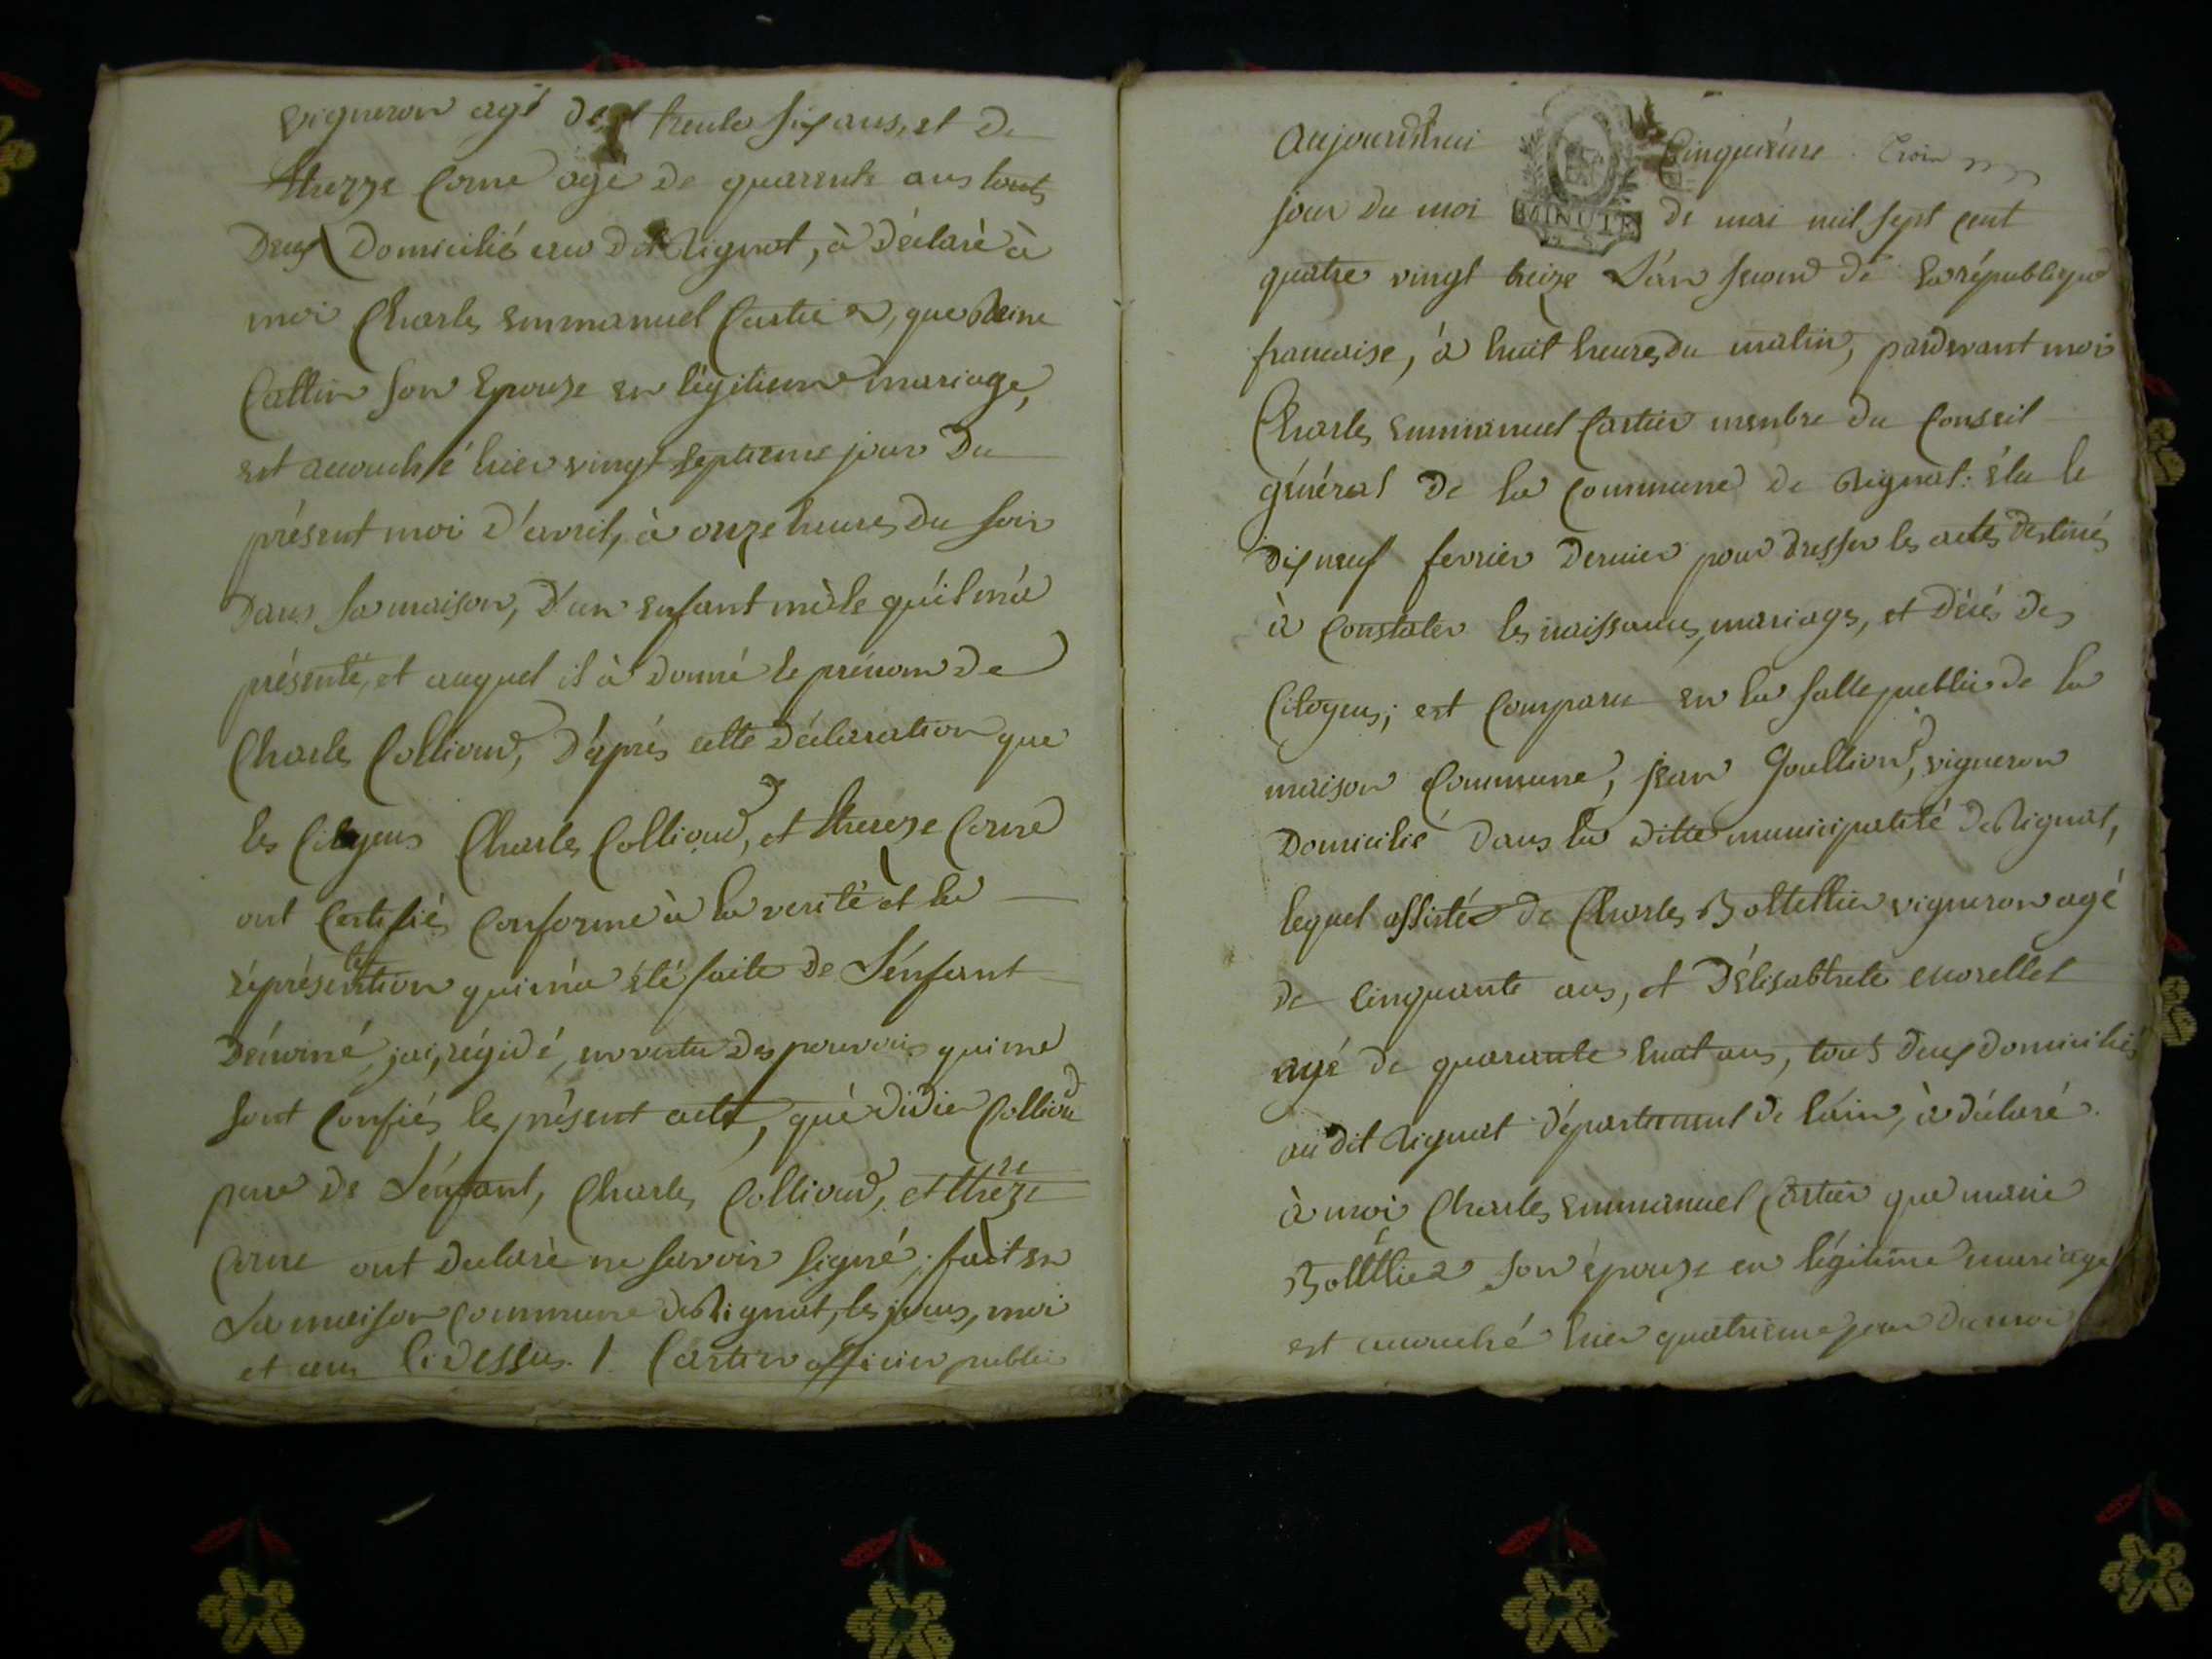 vigneron agé de trente six ans, et de
therese Corne agé de quarente ans touts
Deux Domicilié au Dit Rignat, à Déclaré à
moi Charles emmanuel Cartier, que Reine
Cattin son Epouze en légitime mariage,
est accouché hier vingt septieme jour Du
présent moi D'avril, à onze heures du soir
Dans sa maison, D'un enfant mâle qu'il m'a
présenté, et auquel il à donné le prénom de
Charles Collioud, D'après cette Déclaration que
les Citoyens Charles Collioud, et thereze Corne
ont Certifiés Conforme à la verité et la
répresentation qui m'a été faite de L'énfant
Denomé, jai, régidé, en vertu des pouvoirs qui me
sont Confiés le présent acte, què Didier Colliou
pere de L'énfant, Charles Collioud, et thereze
Corne ont declarè ne savoir signé, fait en
La maison Commune de Rignat, les jours, moi
et ans Ci dessus. / Cartier officier public
aujourd'hui Cinquième
jour du moi MINUTE de mai mil sept cent
quatre vingt treize L'an second de la république
francaise, à huit heures du matin, pardevant moi
Charles emmanuel Cartier membre du Conseil
général de la Commune de Rignat: élu le
Dix neuf fevrier Dernier pour dresser les actes destinés
à Constater les naissances, mariages, et Décés des
Citoyens; est Comparu en la salle public de la
maison Commune, jean Goullion, vigneron
Domicilié dans la ditte municipalité de Rignat,
lequel assisté de Charles Bottellier vigneron agé
de Cinquante ans, et D'élisabthete morellet
agé de quarante huit ans, tous deux domiciliés
au dit Rignat département de l'ain, à déclaré
à moi Charles emmanuel Cartier que marie
Bottellier son épouze en légitime mariage
est accouché hier quatrieme jour du moi